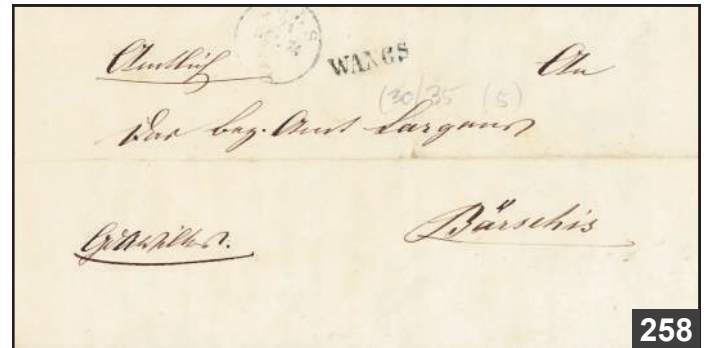 Amtlich WANGS An
(30/35 (5)
Das Bez. Amt Sargans
Bärschis
258